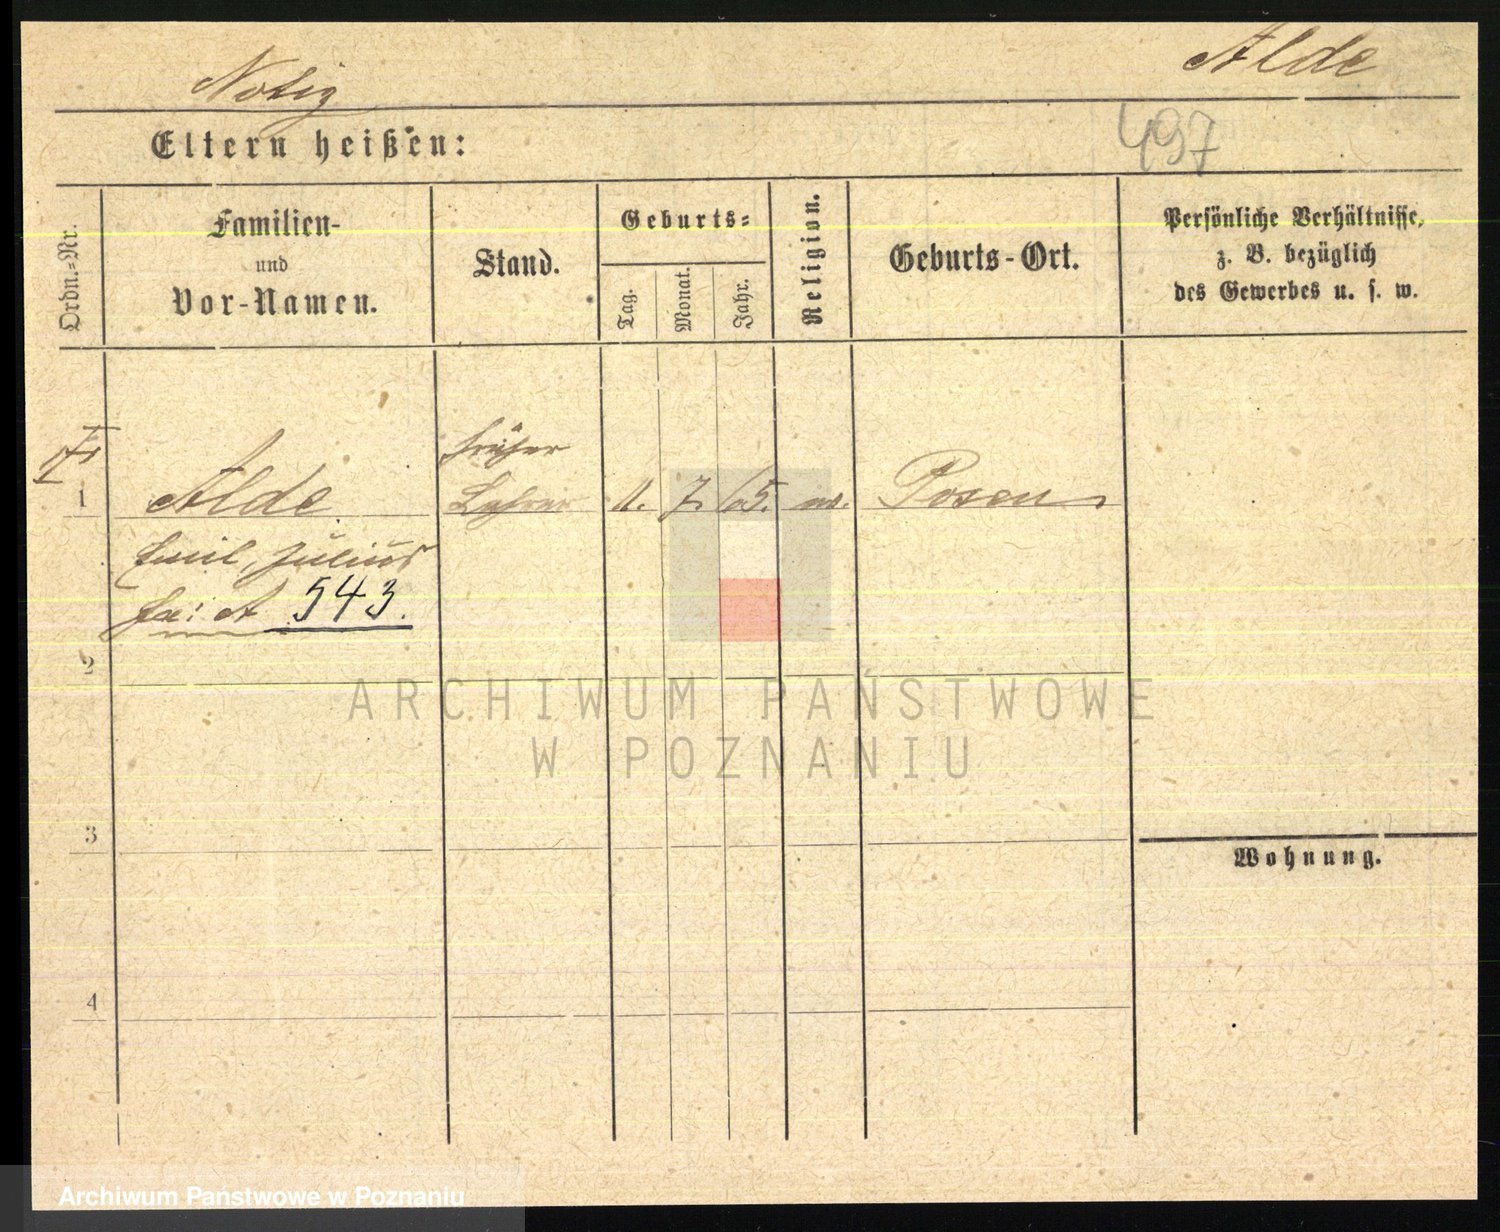 Notiz
Alde
Eltern heißen:
497
Ordn.-Nr.
Familien-
und
Vor-Namen.
Stand.
Geburts-
Tag.
Monat.
Jahr.
Religion.
Geburts-Ort.
Persönliche Verhältnisse,
z. B. bezüglich
des Gewerbes u. s. w.
früher
1 Alde Lehrer 11. 7. 65. Posen
Emil, Julius
fa: A 543.
2
3
4
Wohnung.
ARCHIWUM PAŃSTWOWE
W POZNANIU
Archiwum Państwowe w Poznaniu